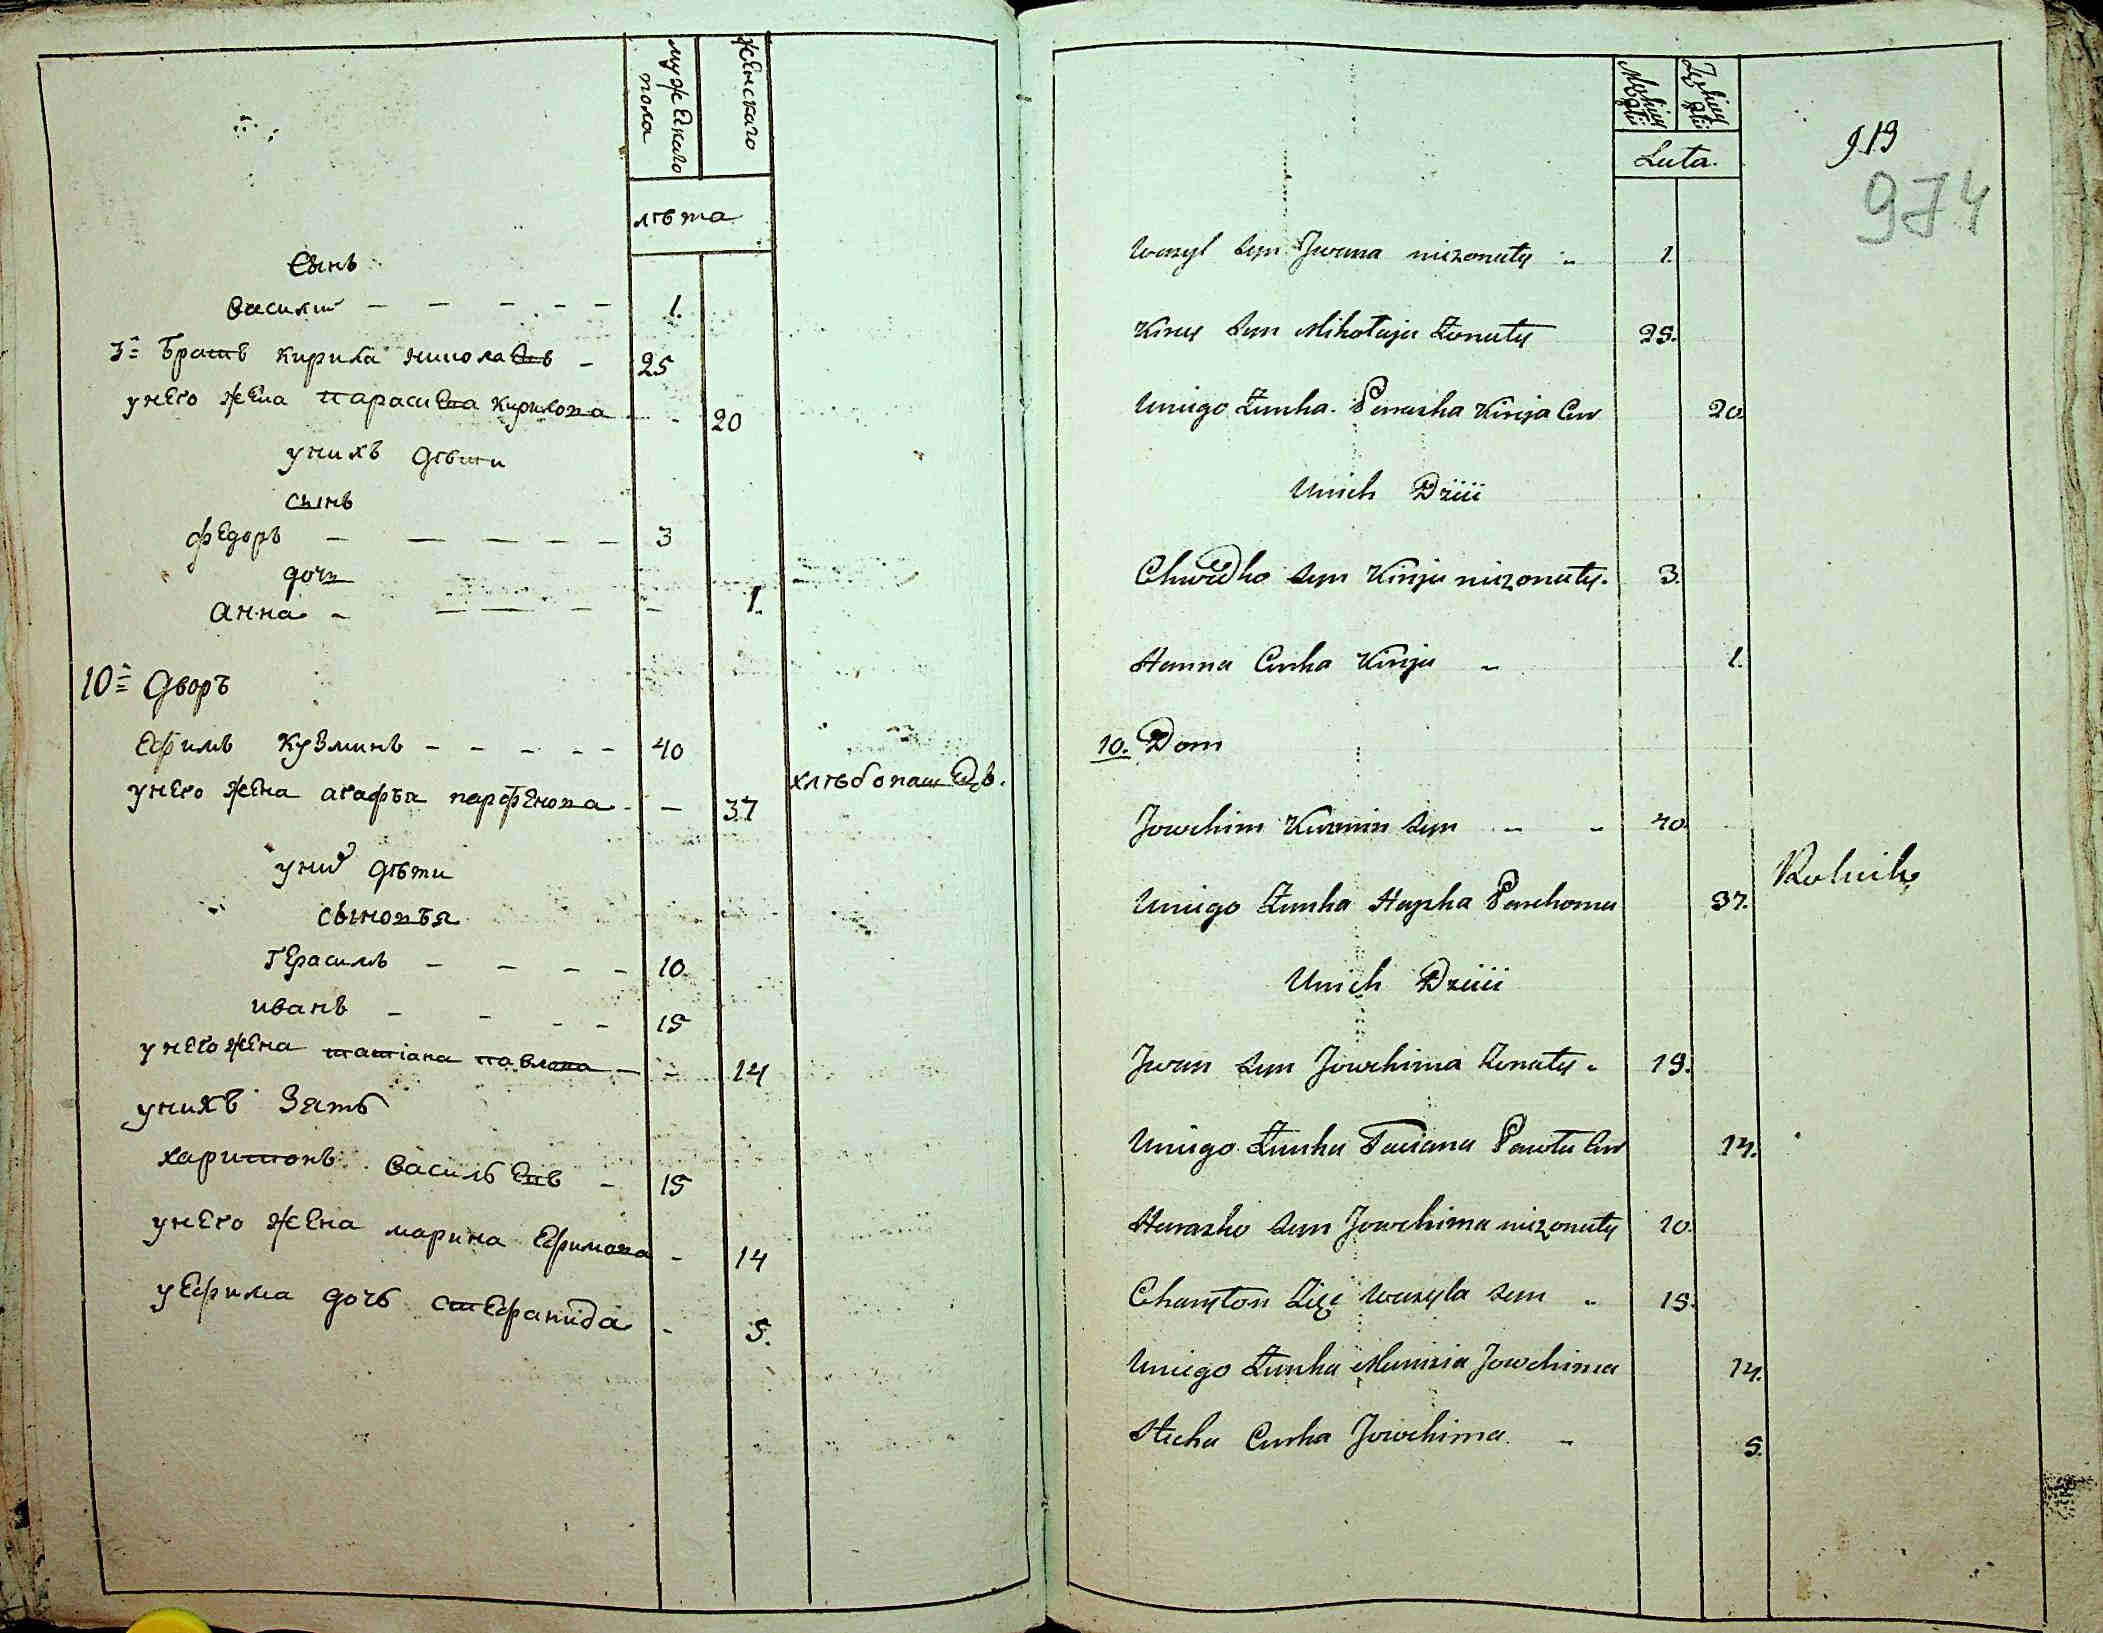 мужескаго пола
женскаго
лѣта
сынъ
василий – – – – – 1.
3й братъ кирила николаевъ – 25
унего жена парасковa кирилова – 20
унихъ дѣти
сынъ
федоръ – – – – – 3
дочь
анна – – – – – 1.
10й дворъ
Ефимъ Кузминъ – – – – – 40
унего жена агафья парфенова – – 37
хлѣбопашецъ.
уних дѣти
сыновья
герасимъ – – – – 10.
иванъ – – – – 15
унего жена татіана павлова – – 14
унихъ зять
харитонъ василь евъ – 15
унего жена марина Ефимова – 14
уЕфима дочь стефанида – 5.
Męskiej płci
Żeńskiej płci
Luta.
919
974
Wasyl syn Jwana nieżonaty „ 1.
Kiryj syn Mikołaja żonaty 25.
Uniego Żunka Paraska Kiryja Cur 20
Unich Dzieii
Chwedko syn Kiryja nieżonaty. 3.
Hanna Curka Kiryja „ 1.
10. Dom
Jowchim Kuzmin syn „ „ 40.
Uniego Żunka Hapka Parchoma 37.
Rolnik
Unich Dzieii
Jwan syn Jowchima żonaty „ 19.
Uniego Żunka Taciana Pawła Cur 14.
Harasko syn Jowchima nieżonaty 10.
Charyton Zięć Wasyla syn „ 15.
Uniego Żunka Marisia Jowchima 14.
Stecha Curka Jowchima „ 5.